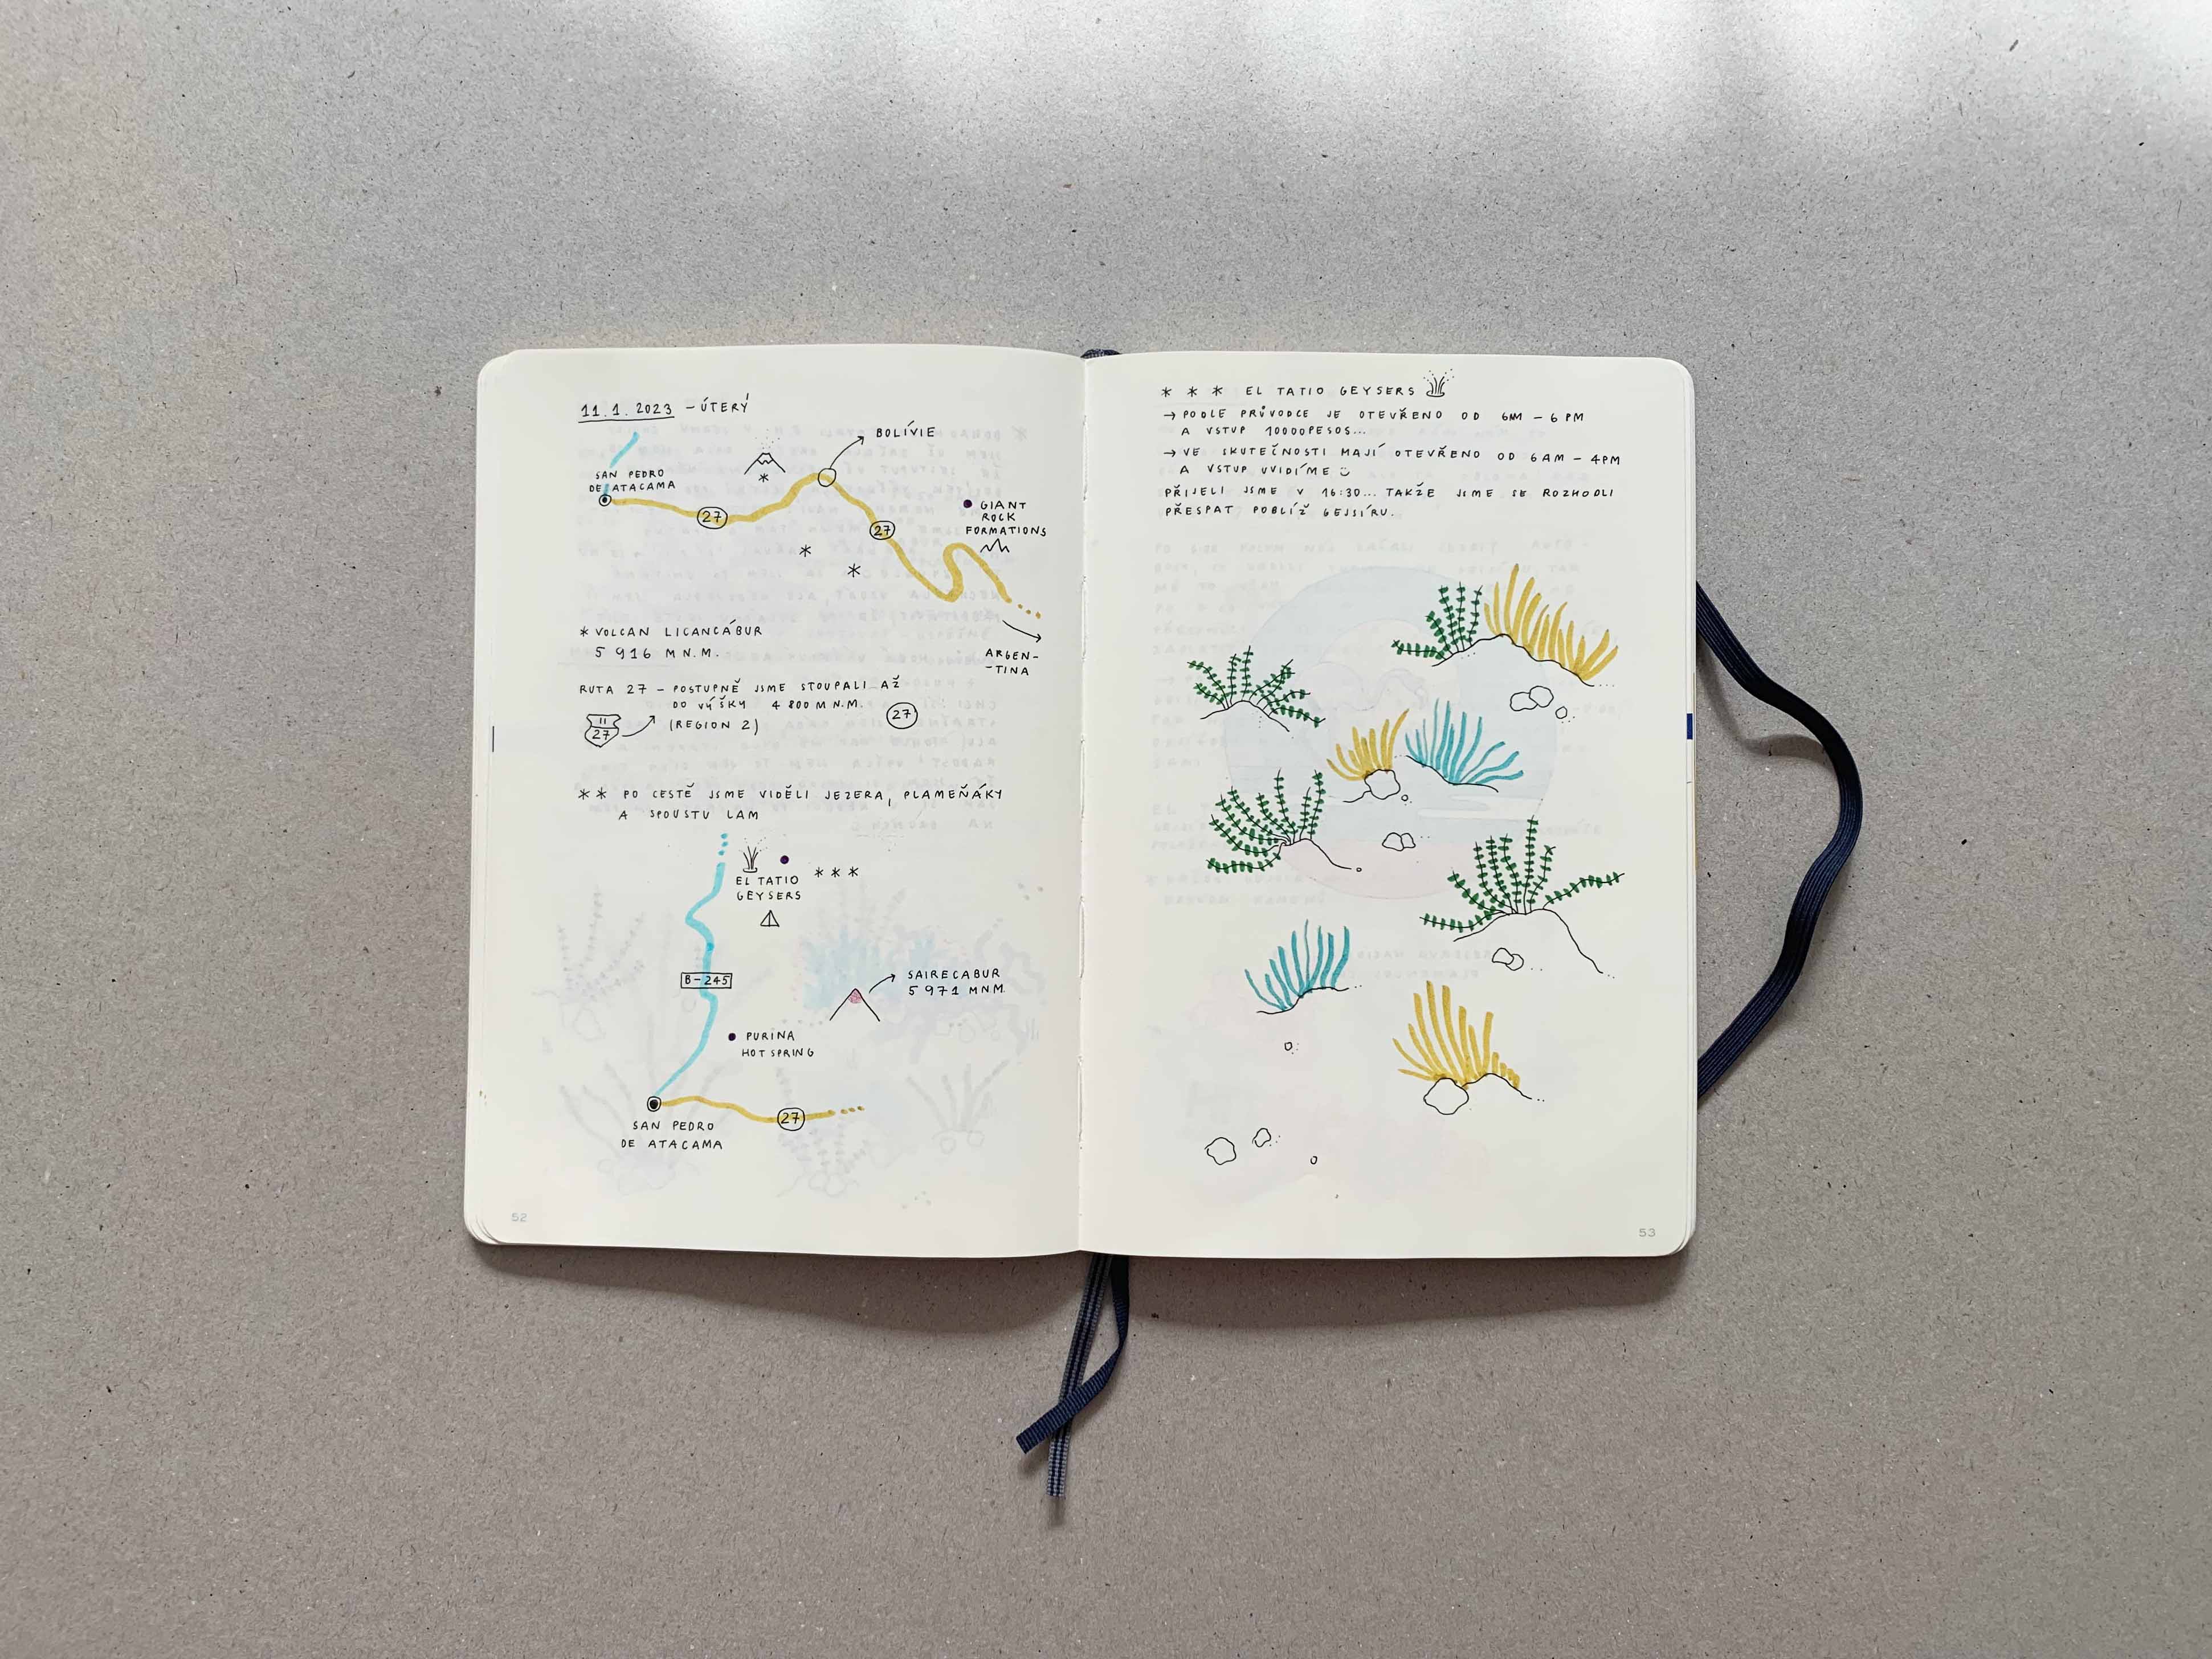 11.1.2023 – ÚTERÝ
BOLÍVIE
SAN PEDRO
DE ATACAMA
27
27
GIANT
ROCK
FORMATIONS
*
*
*
ARGEN-
-TINA
* VOLCAN LICANCÁBUR
5 916 M N.M.
RUTA 27 – POSTUPNĚ JSME STOUPALI AŽ
DO VÝŠKY 4 800 M N.M.
27
(REGION 2)
27
** PO CESTĚ JSME VIDĚLI JEZERA, PLAMEŇÁKY
A SPOUSTU LAM
EL TATIO
GEYSERS
***
B-245
SAIRECABUR
5 971 MNM.
PURINA
HOT SPRING
27
SAN PEDRO
DE ATACAMA
52
*** EL TATIO GEYSERS
→ PODLE PRŮVODCE JE OTEVŘENO OD 6AM – 6 PM
A VSTUP 10000PESOS...
→ VE SKUTEČNOSTI MAJÍ OTEVŘENO OD 6AM – 4PM
A VSTUP UVIDÍME
PŘIJELI JSME V 16:30... TAKŽE JSME SE ROZHODLI
PŘESPAT POBLÍŽ GEJSÍRU.
53